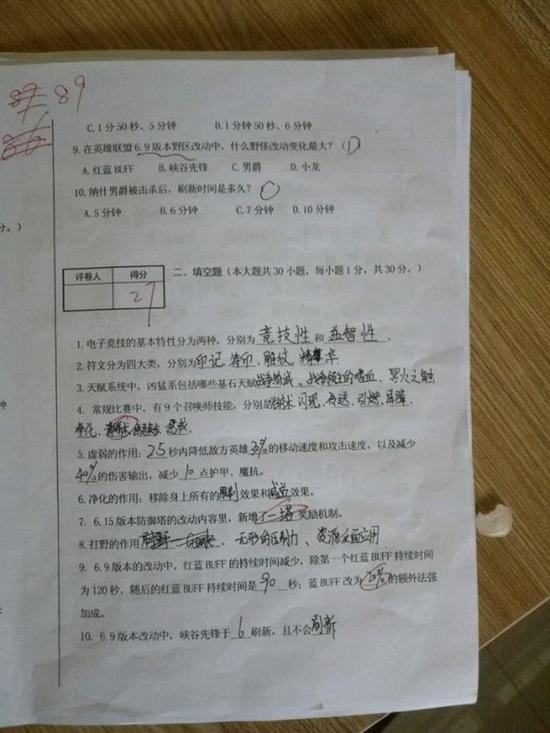 89
C.1分50秒、5分钟 D.1分钟50秒、6分钟
9.在英雄联盟6.9版本野区改动中，什么野怪改动变化最大？（D）
A.红蓝BUFF B.峡谷先锋 C.男爵 D.小龙
10.纳什男爵被击杀后，刷新时间是多久？
A.5分钟 B.6分钟 C.7分钟 D.10分钟
分。）
评卷人 得分
27
二、填空题（本大题共30小题，每小题1分，共30分。）
1.电子竞技的基本特性分为两种，分别为竞技性和益智性．
2.符文分为四大类，分别为印记 符印、雕纹、精华
3.天赋系统中，凶猛系包括哪些基石天赋战争热诚、战争领主的嗜血、死火之触
4.常规比赛中，有9个召唤师技能，分别是治疗术 闪现、传送、引燃、屏障、
净化、惩戒
5.虚弱的作用：2.5秒内降低敌方英雄30%的移动速度和攻击速度，以及减少
40%的伤害输出，减少10点护甲、魔抗。
6.净化的作用：移除身上所有的限制效果和减益效果。
7.6.15版本防御塔的改动内容里，新增了一塔奖励机制。
8.打野的作用 无形的压制力、资源反应用
9.6.9版本的改动中，红蓝BUFF的持续时间减少，除第一个红蓝BUFF持续时间
为120秒，随后的红蓝BUFF持续时间是90秒；蓝BUFF改为的额外法强
加成。
10.6.9版本改动中，峡谷先锋于6刷新，且不会刷新